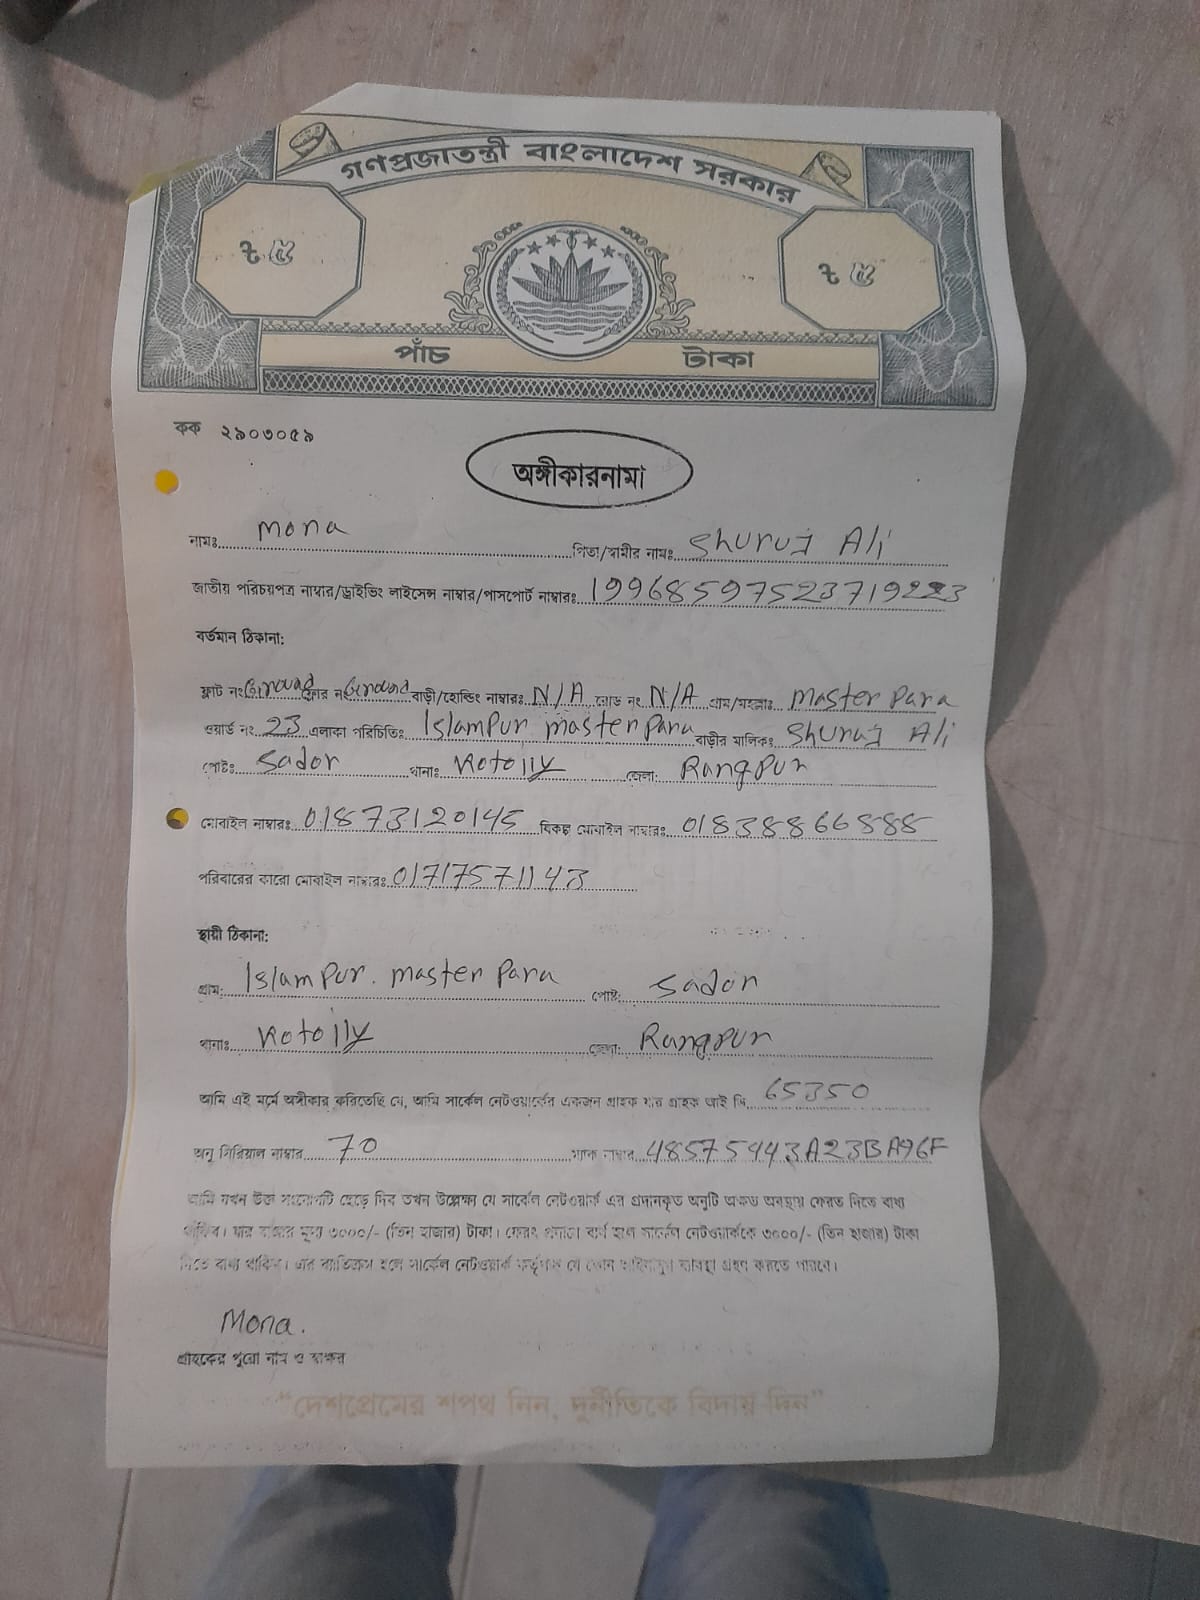 গণপ্রজাতন্ত্রী বাংলাদেশ সরকার
৳ ৫ ৳ ৫
পাঁচ টাকা
কক ২৯০৩০৫৯
অঙ্গীকারনামা
নামঃ Mona পিতা/স্বামীর নামঃ Shuruj Ali
জাতীয় পরিচয়পত্র নাম্বার/ড্রাইভিং লাইসেন্স নাম্বার/পাসপোর্ট নাম্বারঃ 19968597523719223
বর্তমান ঠিকানা:
ফ্লাট নং Ground ফ্লোর নং Ground বাড়ী/হোল্ডিং নাম্বারঃ N/A রোড নং N/A গ্রাম/মহল্লাঃ Master Para
ওয়ার্ড নং 23 এলাকা পরিচিতিঃ Islampur master para বাড়ীর মালিকঃ Shuruj Ali
পোষ্টঃ Sador থানাঃ Kotolly জেলা: Rangpur
মোবাইল নাম্বারঃ 01873120145 বিকল্প মোবাইল নাম্বারঃ 01838866888
পরিবারের কারো মোবাইল নাম্বারঃ 01717571143
স্থায়ী ঠিকানা:
গ্রাম: Islampur. master para পোষ্ট: Sador
থানাঃ Kotolly জেলা: Rangpur
আমি এই মর্মে অঙ্গীকার করিতেছি যে, আমি সার্কেল নেটওয়ার্কের একজন গ্রাহক যার গ্রাহক আই ডি 65350
অনু সিরিয়াল নাম্বার 70 ম্যাক নাম্বার 48575443A23BA96F
আমি যখন উক্ত সংযোগটি ছেড়ে দিব তখন উল্লেক্ষ্য যে সার্কেল নেটওয়ার্ক এর প্রদানকৃত অনুটি অক্ষত অবস্থায় ফেরত দিতে বাধ্য
থাকিব। যার বাজার মূল্য ৩০০০/- (তিন হাজার) টাকা। ফেরৎ প্রদানে ব্যর্থ হলে সার্কেল নেটওয়ার্ককে ৩০০০/- (তিন হাজার) টাকা
দিতে বাধ্য থাকিব। এর ব্যতিক্রম হলে সার্কেল নেটওয়ার্ক কর্তৃপক্ষ যে কোন আইনানুগ ব্যবস্থা গ্রহণ করতে পারবে।
Mona.
গ্রাহকের পুরো নাম ও স্বাক্ষর
“দেশপ্রেমের শপথ নিন, দুর্নীতিকে বিদায় দিন”